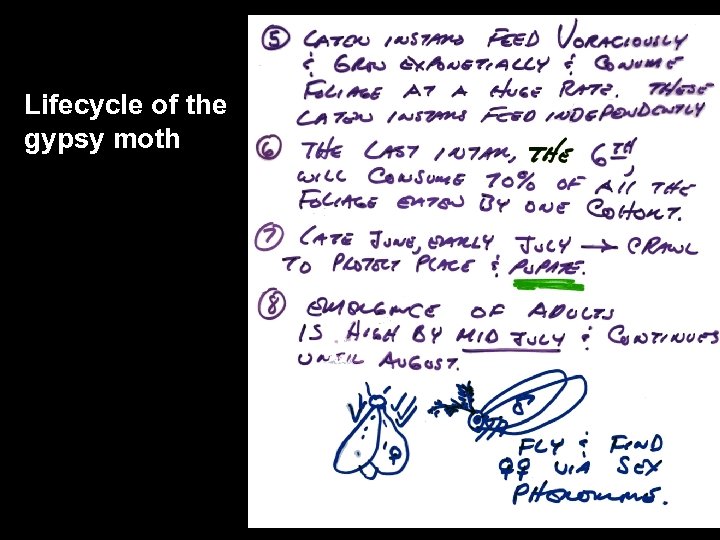 Lifecycle of the
gypsy moth
⑤ LATER INSTARS FEED VORACIOUSLY
& GROW EXPONETIALLY & CONSUME
FOLIAGE AT A HUGE RATE. THESE
LATER INSTARS FEED INDEPENDENTLY
⑥ THE LAST INTAR, THE 6TH,
WILL CONSUME 70% OF All THE
FOLIAGE EATEN BY ONE COHORT.
⑦ LATE JUNE, EARLY JULY → CRAWL
TO PROTECT PLACE & PUPATE.
⑧ EMERGENCE OF ADULTS
IS HIGH BY MID JULY & CONTINUES
UNTIL AUGUST.
♀ ♂
FLY & FIND
♀♀ VIA SEX
PHEROMONE.